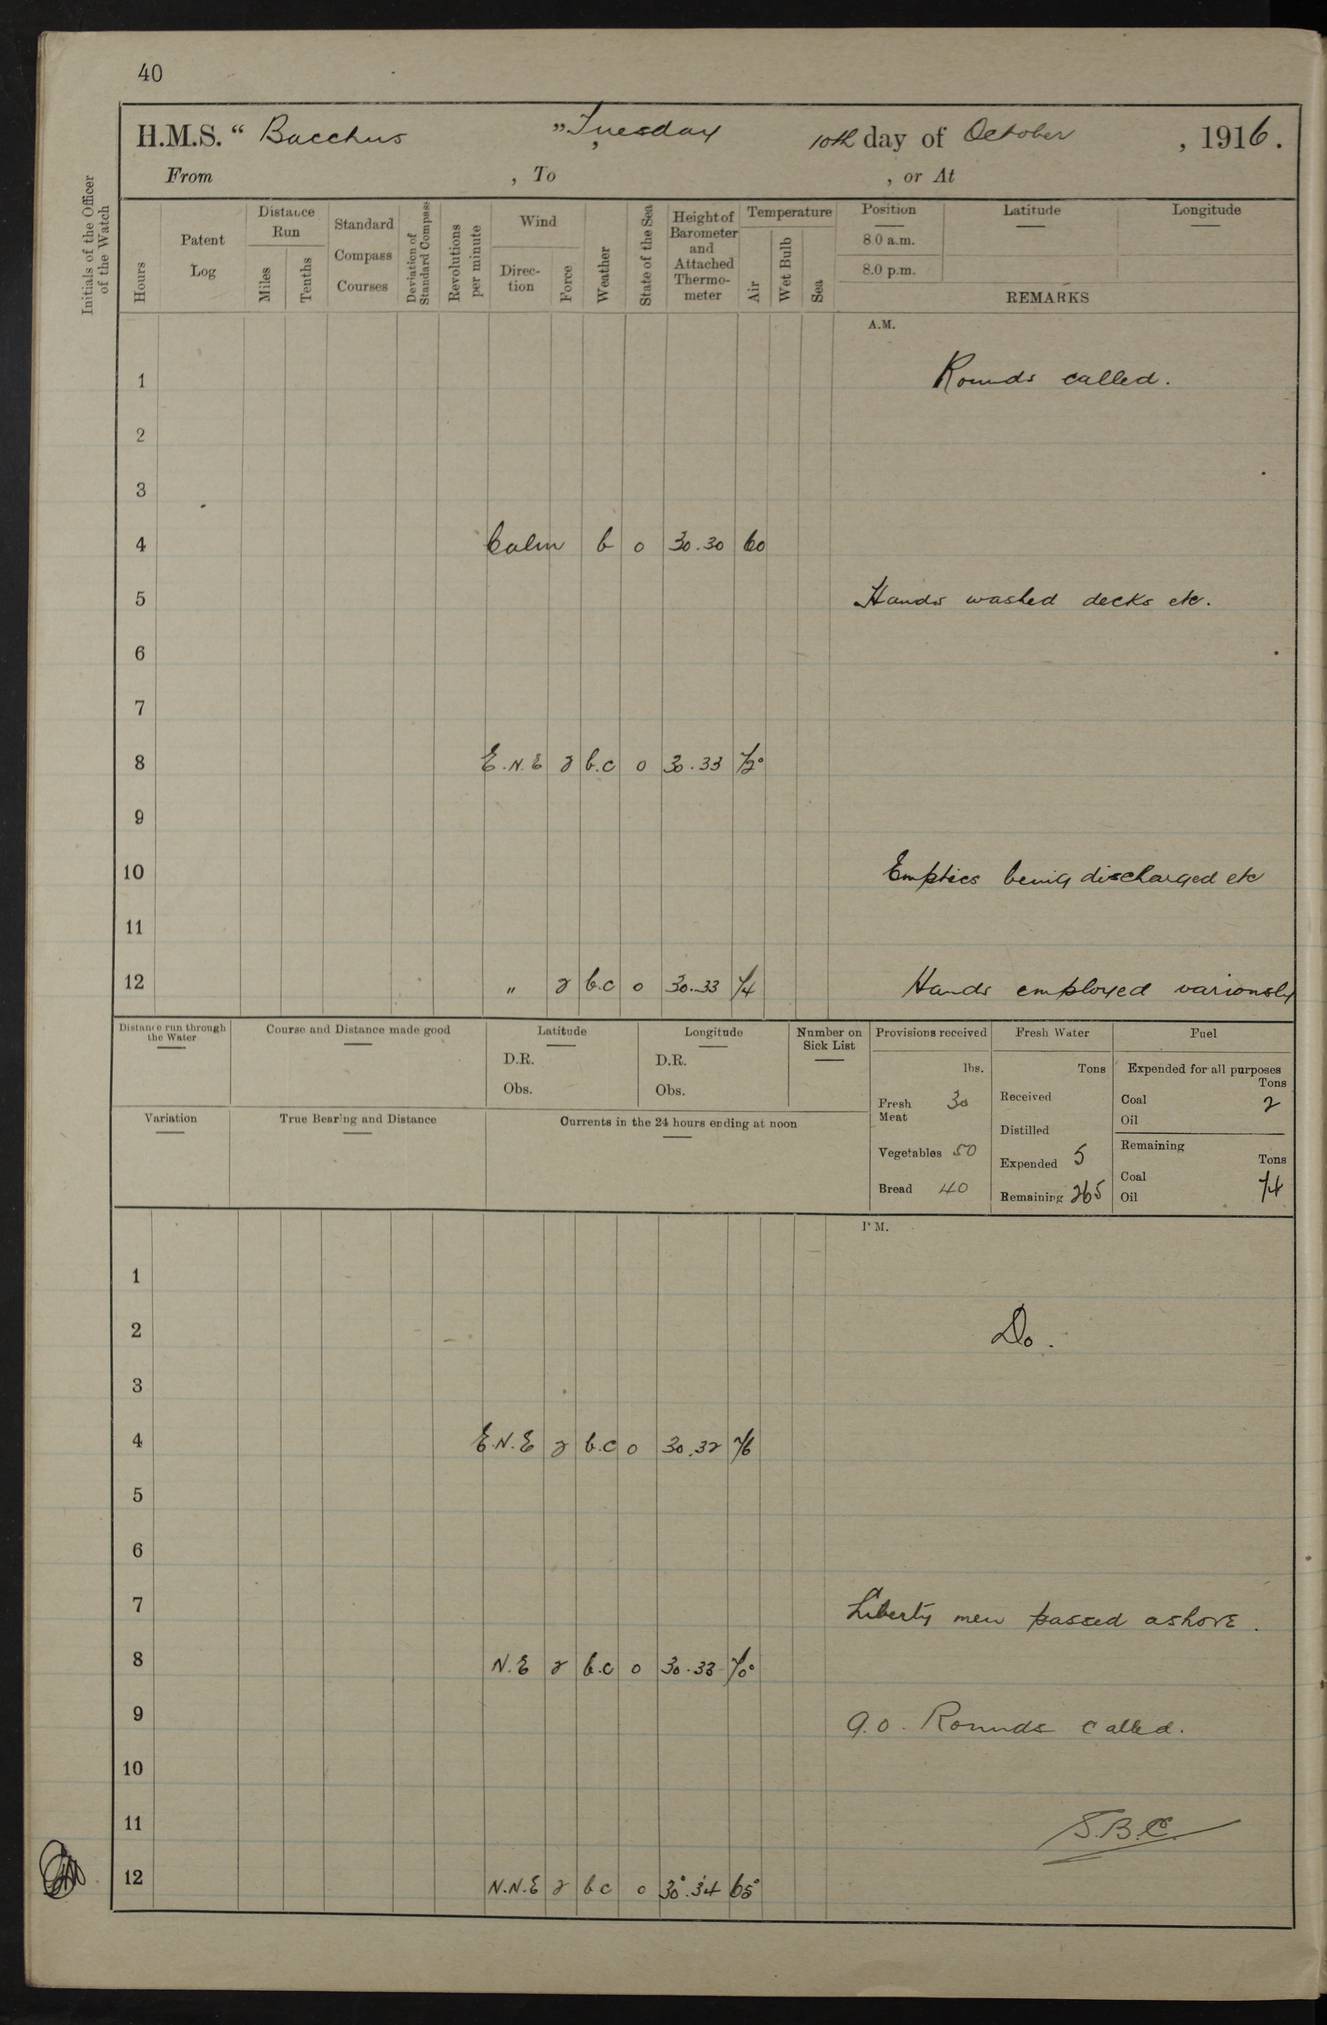 40
H.M.S. “ Bacchus ”, Tuesday 10th day of October , 1916.
From , To , or At
Initials of the Officer of the Watch
Hours
Patent Log
Distance Run
Miles
Tenths
Standard Compass Courses
Deviation of Standard Compass
Revolutions per minute
Wind
Direction
Force
Weather
State of the Sea
Height of Barometer and Attached Thermometer
Temperature
Air
Wet Bulb
Sea
Position
8.0 a.m.
8.0 p.m.
Latitude
Longitude
REMARKS
A.M.
1 Rounds called.
2
3
4 Calm b o 30.30 60
5 Hands washed decks etc.
6
7
8 E.N.E 2 b.c o 30.33 72°
9
10 Empties being discharged etc
11
12 " 2 b.c o 30.33 74 Hands employed variously
Distance run through the Water
Course and Distance made good
Latitude
D.R.
Obs.
Longitude
D.R.
Obs.
Number on Sick List
Variation
True Bearing and Distance
Currents in the 24 hours ending at noon
Provisions received
lbs.
Fresh Meat 30
Vegetables 50
Bread 40
Fresh Water
Tons
Received
Distilled
Expended 5
Remaining 265
Fuel
Expended for all purposes
Tons
Coal 2
Oil
Remaining
Tons
Coal 74
Oil
P.M.
1
2 Do.
3
4 E.N.E 2 b.c o 30.32 76
5
6
7 Liberty men passed ashore.
8 N.E 2 b.c o 30.33 70°
9 9.0. Rounds called.
10
11 S.B.C.
12 N.N.E 2 bc o 30.34 65°